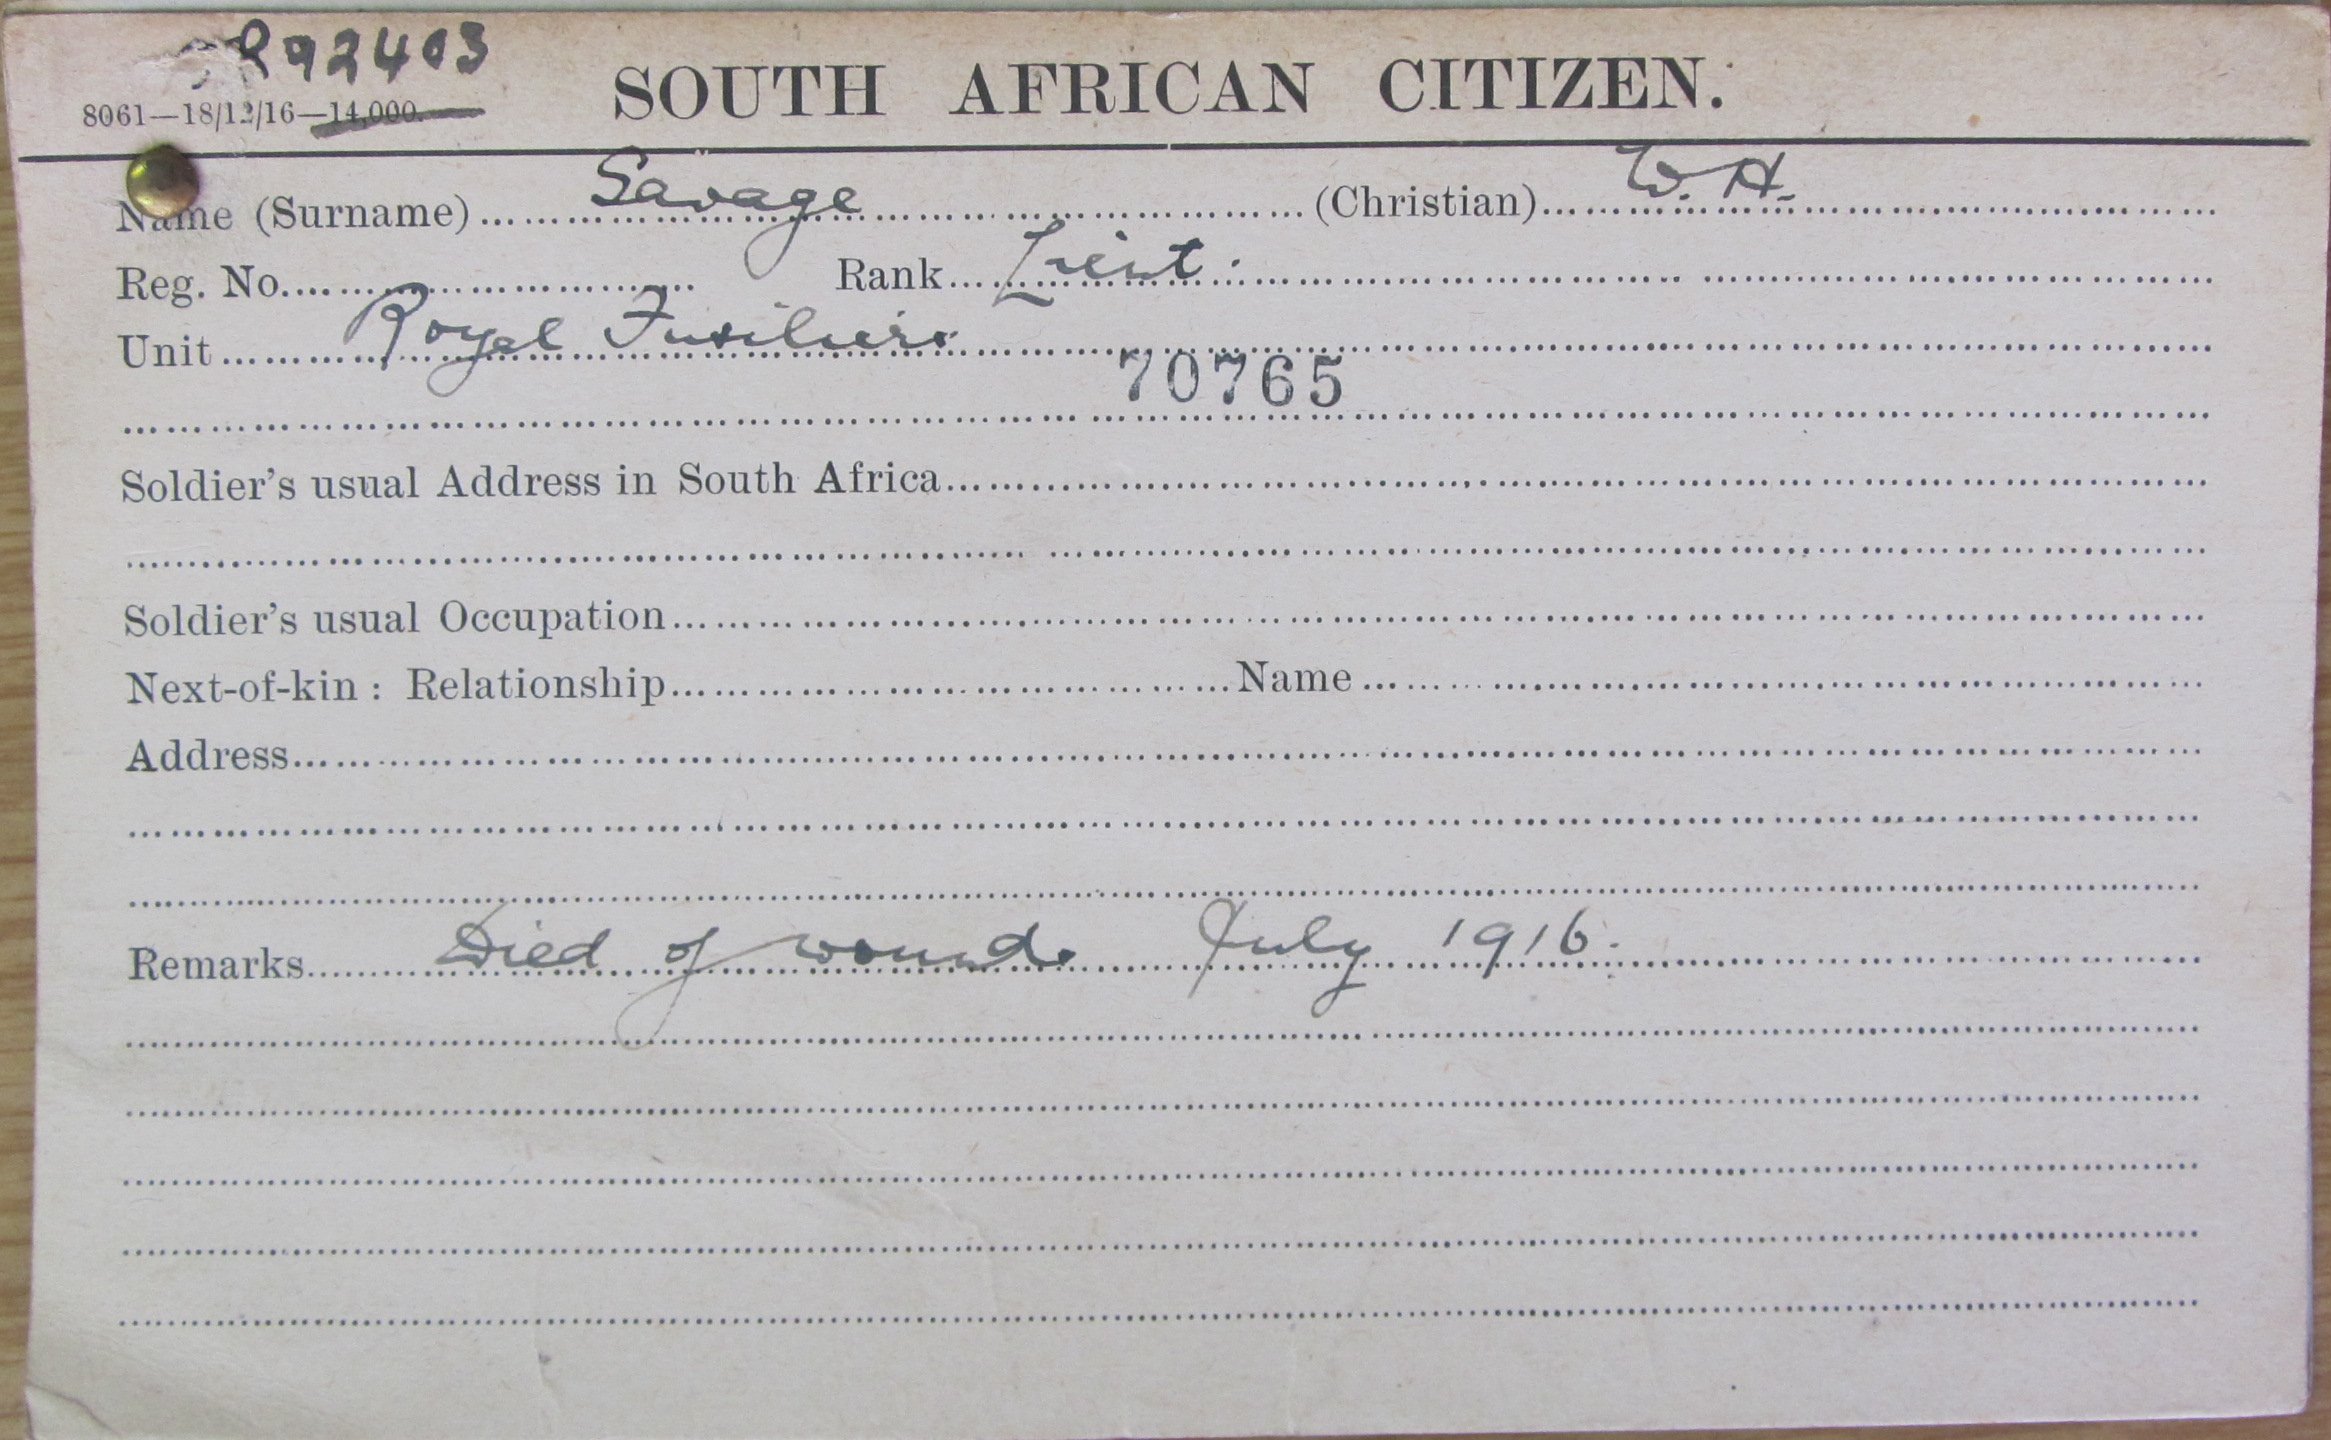 R92403
8061—18/12/16—14,000.
SOUTH AFRICAN CITIZEN.
Name (Surname) Savage (Christian) W. H.
Reg. No. Rank Lieut.
Unit Royal Fusiliers
70765
Soldier's usual Address in South Africa
Soldier's usual Occupation
Next-of-kin : Relationship Name
Address
Remarks Died of wounds July 1916.